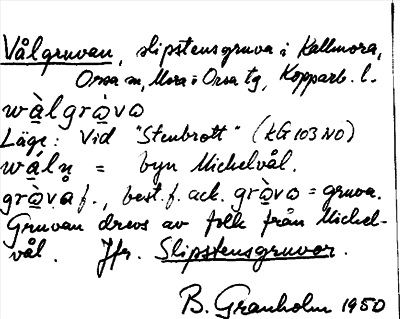 Vålgruvan, slipstensgruva i Kallmora,
Orsa sn, Mora i Orsa tg, Kopparb. l.
wàlgrȁvo
Läge: Vid "Stenbrott" (KG 103 NO)
wáln = byn Michelvål.
gràva f., best. f. ack. gràvo = gruva.
Gruvan drevs av folk från Michel-
vål. Jfr. Slipstensgruvor.
B. Granholm 1950